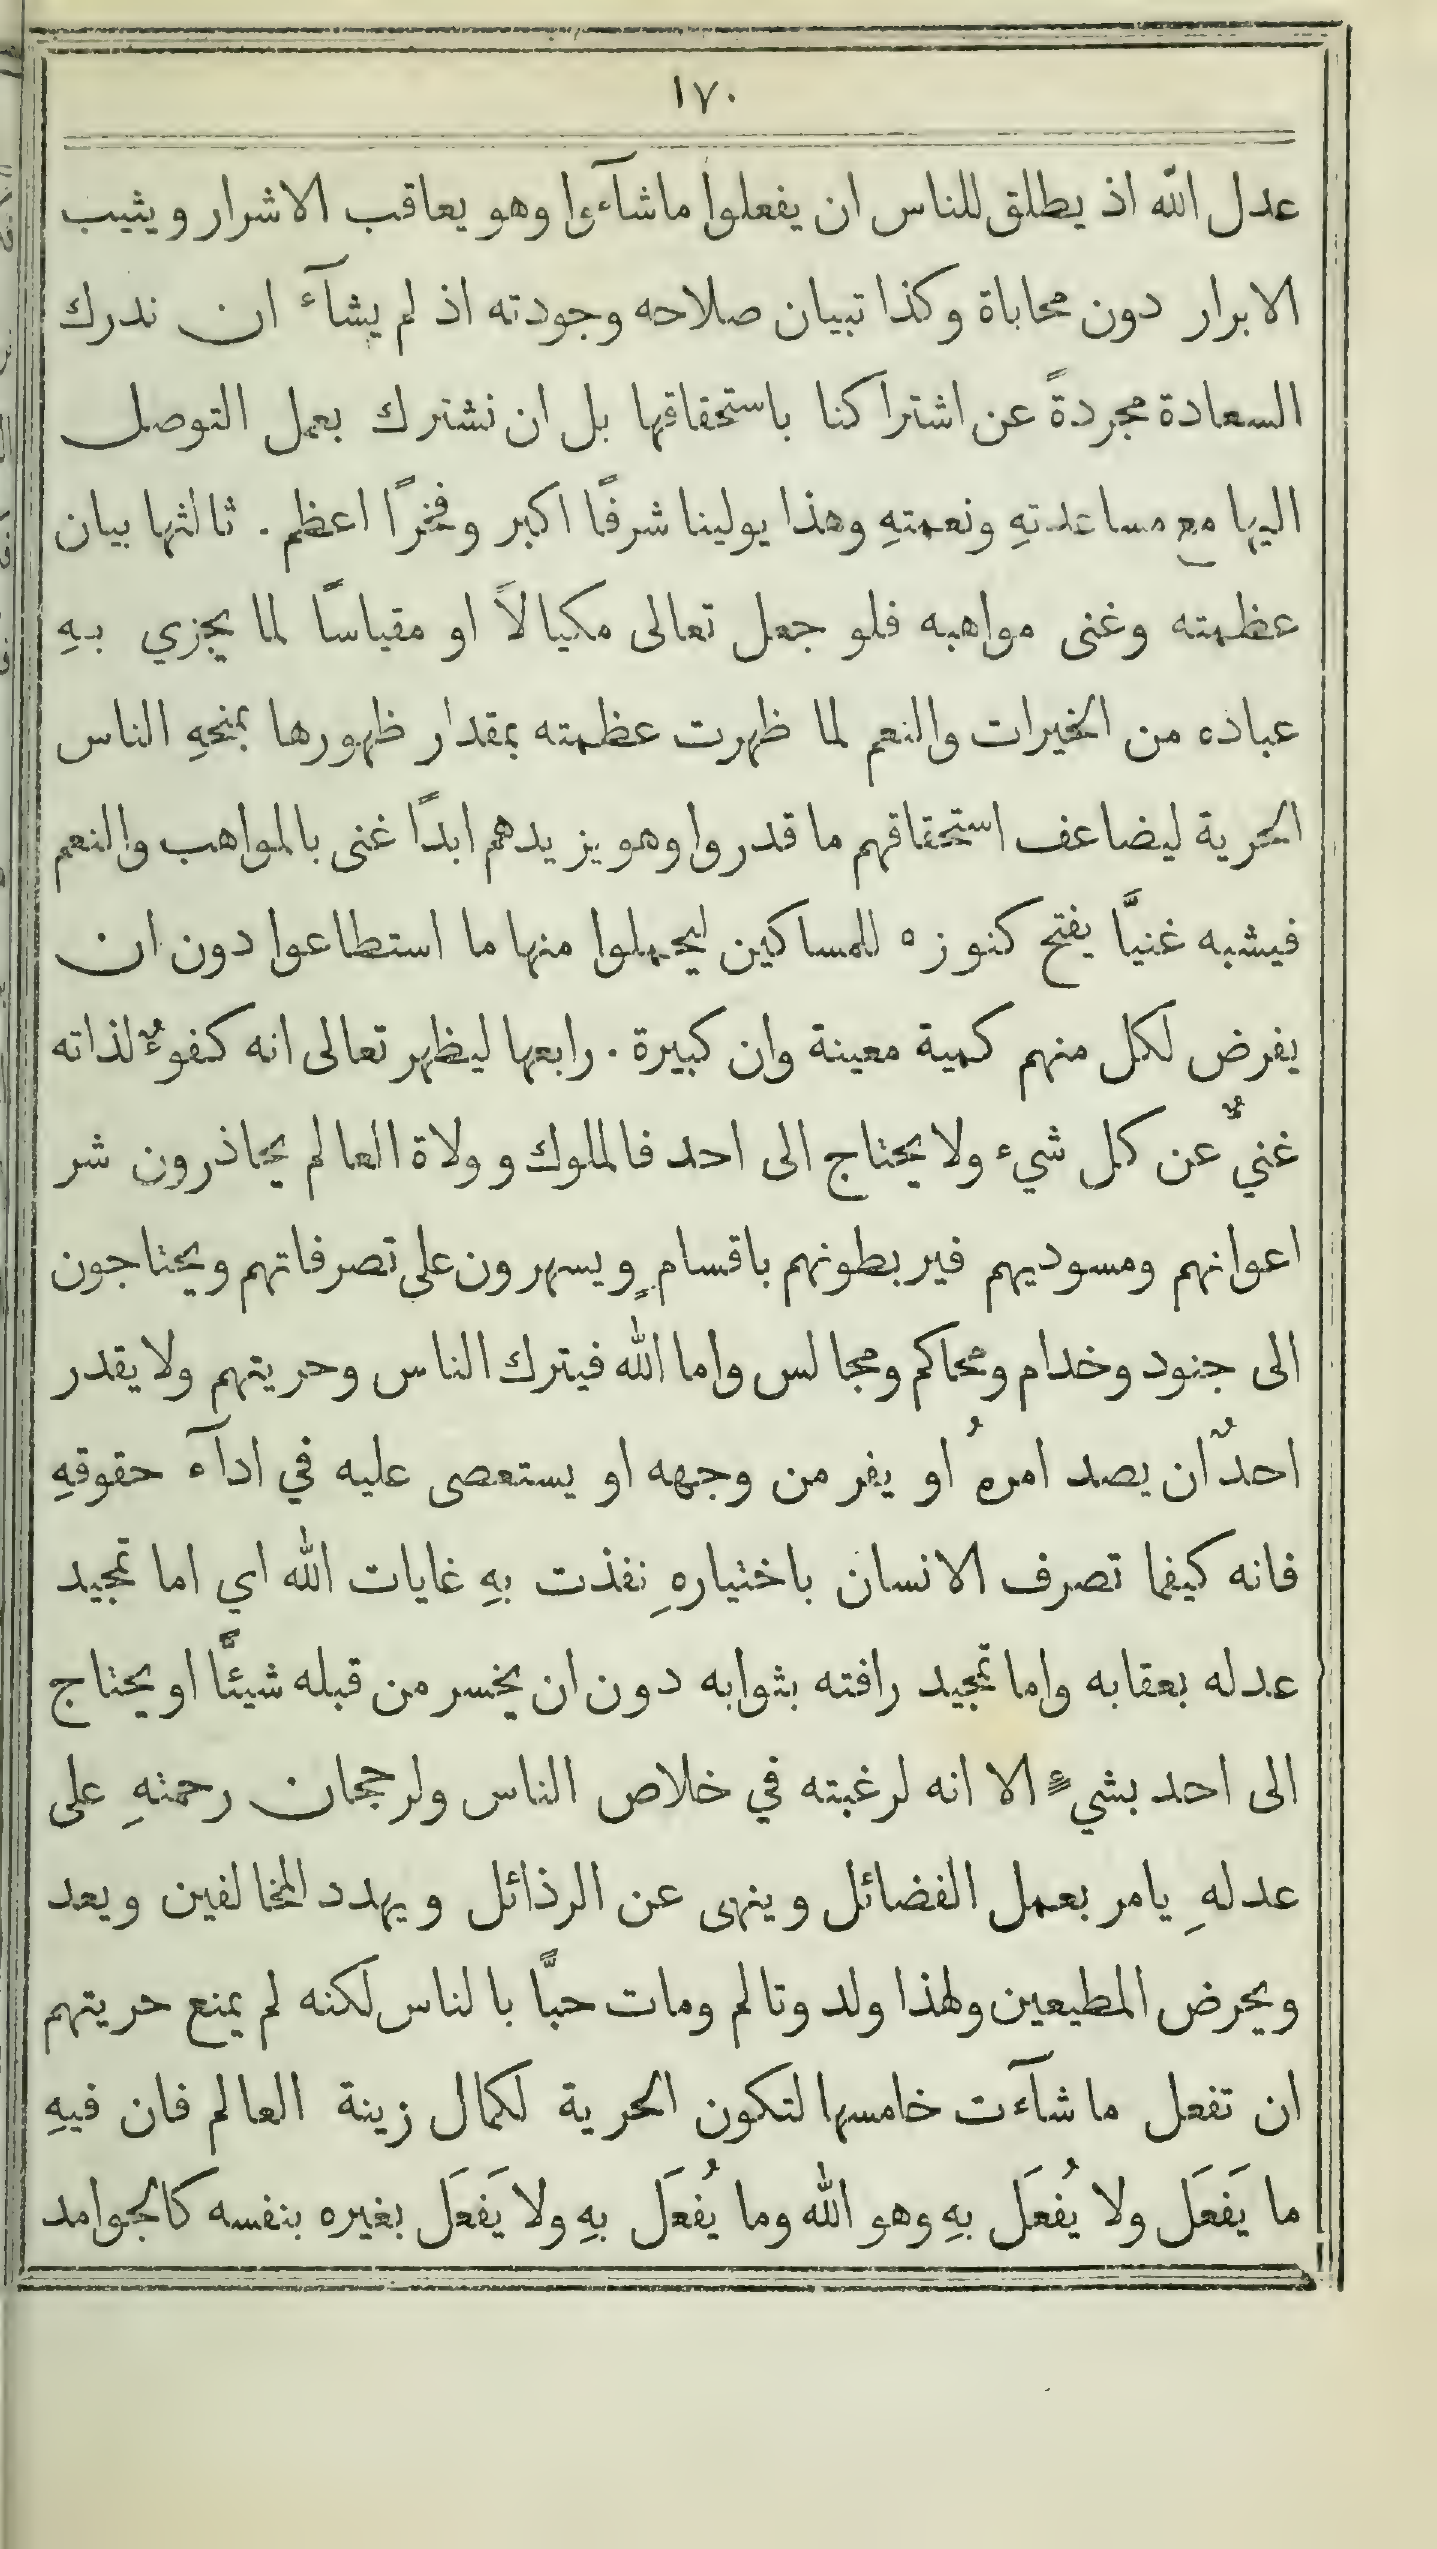 ١٧٠
عدل الله اذ يطلق للناس ان يفعلوا ماشآءوا وهو يعاقب الاشرار ويثيب
الابرار دون محاباة وكذا تبيان صلاحه وجودته اذ لم يشآء ان ندرك
السعادة مجردةً عن اشتراكنا باستحقاقها بل ان نشترك بعمل التوصل
اليها مع مساعدتهِ ونعمتهِ وهذا يولينا شرفًا اكبر وفخرًا اعظم. ثالثها بيان
عظمته وغنى مواهبه فلو جعل تعالى مكيالاً او مقياسًا لما يجزي بهِ
عباده من الخيرات والنعم لما ظهرت عظمته بمقدار ظهورها بمنحهِ الناس
الحرية ليضاعف استحقاقهم ما قدروا وهو يزيدهم ابدًا غنى بالمواهب والنعم
فيشبه غنيًّا يفتح كنوزه للمساكين ليحملوا منها ما استطاعوا دون ان
يفرض لكل منهم كمية معينة وان كبيرة. رابعها ليظهر تعالى انه كفوءٌ لذاته
غنيٌّ عن كل شيء ولا يحتاج الى احد فالملوك وولاة العالم يحاذرون شر
اعوانهم ومسوديهم فيربطونهم باقسامٍ ويسهرون على تصرفاتهم ويحتاجون
الى جنود وخدام ومحاكم ومجالس واما الله فيترك الناس وحريتهم ولا يقدر
احدٌ ان يصد امرهُ او يفر من وجهه او يستعصى عليه في ادآء حقوقهِ
فانه كيفما تصرف الانسان باختيارهِ نفذت بهِ غايات الله اي اما تمجيد
عدله بعقابه واما تمجيد رافته بثوابه دون ان يخسر من قبله شيئًا او يحتاج
الى احد بشيءٍ الا انه لرغبته في خلاص الناس ولرجحان رحمتهِ على
عدلهِ يامر بعمل الفضائل وينهى عن الرذائل ويهدد المخالفين ويعد
ويحرض المطيعين ولهذا ولد وتالم ومات حبًّا بالناس لكنه لم يمنع حريتهم
ان تفعل ما شآءت خامسها لتكون الحرية لكمال زينة العالم فان فيهِ
ما يَفعَل ولا يُفعَل بهِ وهو الله وما يُفعَل بهِ ولا يَفعَل بغيره بنفسه كالجوامد